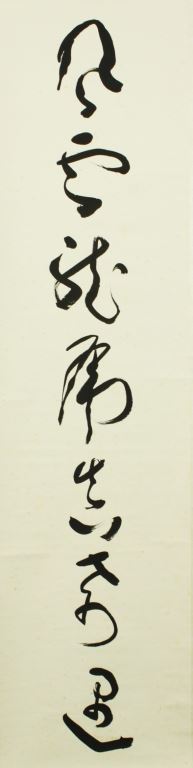 風雲龍虎真奇遇